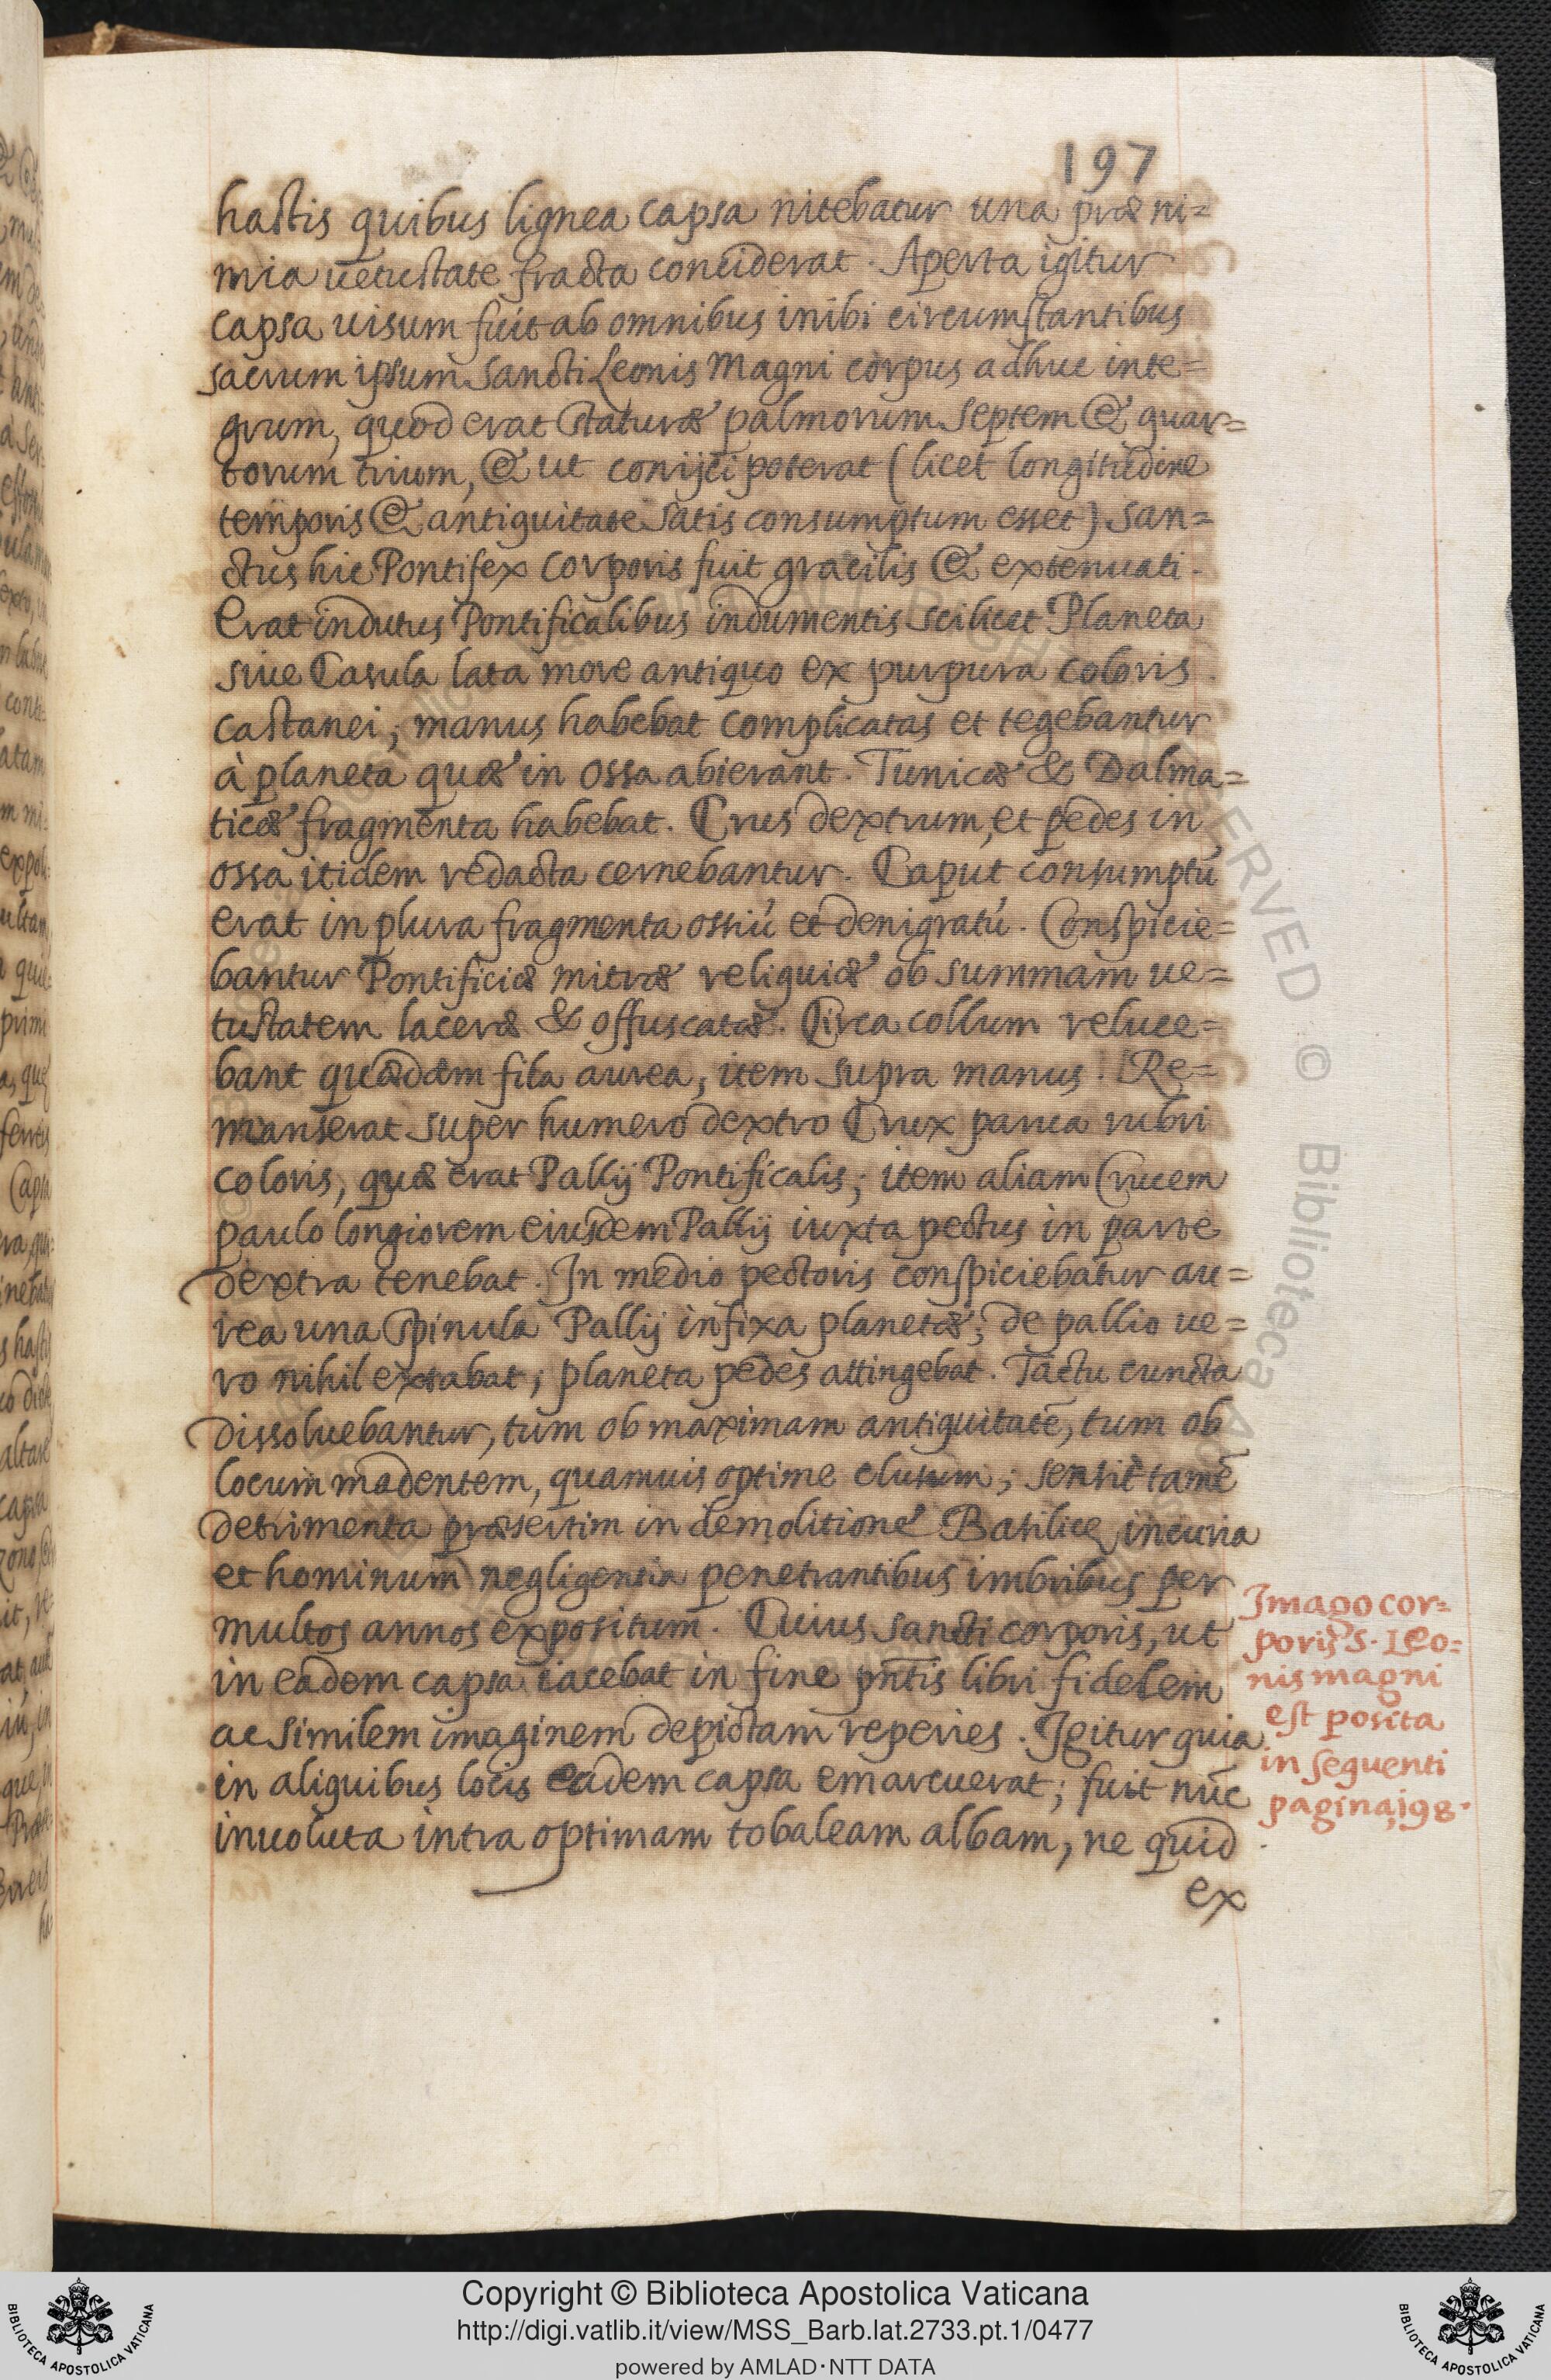 197
hastis quibus lignea capsa nitebatur una præ ni=
mia uetustate fracta conciderat. Aperta igitur
capsa uisum fuit ab omnibus inibi circumstantibus
sacrum ipsum Sancti Leonis Magni corpus adhuc inte=
grum, quod erat staturæ palmorum septem & quar=
torum trium, & ut conijci poterat (licet longitudine
temporis & antiquitate satis consumptum esset) San=
ctus hic Pontifex corporis fuit gracilis & extenuati.
Erat indutus Pontificalibus indumentis scilicet Planeta
siue Casula lata more antiquo ex purpura coloris
castanei; manus habebat complicatas et tegebantur
à planeta quæ in ossa abierant. Tunicæ & Dalma=
ticæ fragmenta habebat. Crus dextrum, et pedes in
ossa itidem redacta cernebantur. Caput consumptū
erat in plura fragmenta ossiū et denigratū. Conspicie=
bantur Pontificiæ mitræ reliquiæ ob summam ue=
tustatem laceræ & offuscatæ. Circa collum reluce=
bant quædam fila aurea, item supra manus. Re=
manserat super humero dextro Crux parua rubri
coloris, quæ erat Pallij Pontificalis; item aliam Crucem
paulo longiorem eiusdem Pallij iuxta pectus in parte
dextra tenebat. In medio pectoris conspiciebatur au=
rea una spinula Pallij infixa planetæ; de pallio ue=
ro nihil extabat; planeta pedes attingebat. Tactu cuncta
dissoluebantur, tum ob maximam antiquitatē, tum ob
locum madentem, quamuis optime clusum; sensit tamē
detrimenta præsertim in demolitione Basilicę incuria
et hominum negligentia penetrantibus imbribus per
multos annos expositum. Cuius sancti corporis, ut
in eadem capsa iacebat in fine pñtis libri fidelem
ac similem imaginem depictam reperies. Igitur quia
in aliquibus locis eadem capsa emarcuerat; fuit nūc
inuoluta intra optimam tobaleam albam, ne quid
ex
Imago cor=
poris S. Leo=
nis magni
est posita
in sequenti
pagina 198.
Copyright © Biblioteca Apostolica Vaticana
http://digi.vatlib.it/view/MSS_Barb.lat.2733.pt.1/0477
powered by AMLAD·NTT DATA
BIBLIOTECA APOSTOLICA VATICANA
BIBLIOTECA APOSTOLICA VATICANA